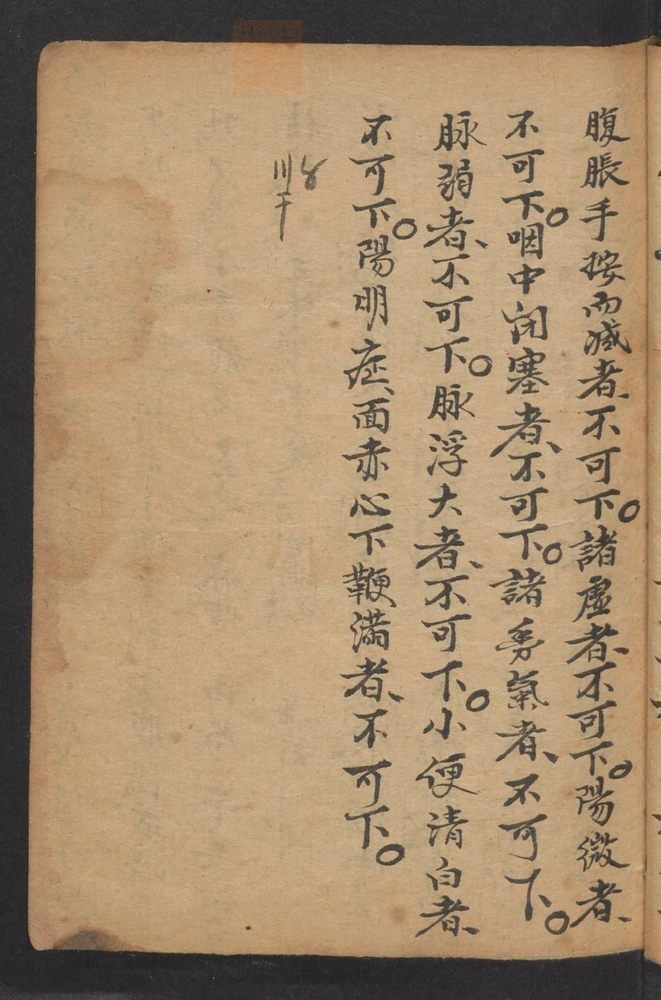 腹脹手按而減者、不可下。諸虛者、不可下。陽微者、
不可下。咽中闭塞者、不可下。諸氣者、不可下。
脉弱者、不可下。脉浮大者、不可下。小便清白者、
不可下。陽明症、面赤心下鞕滿者、不可下。